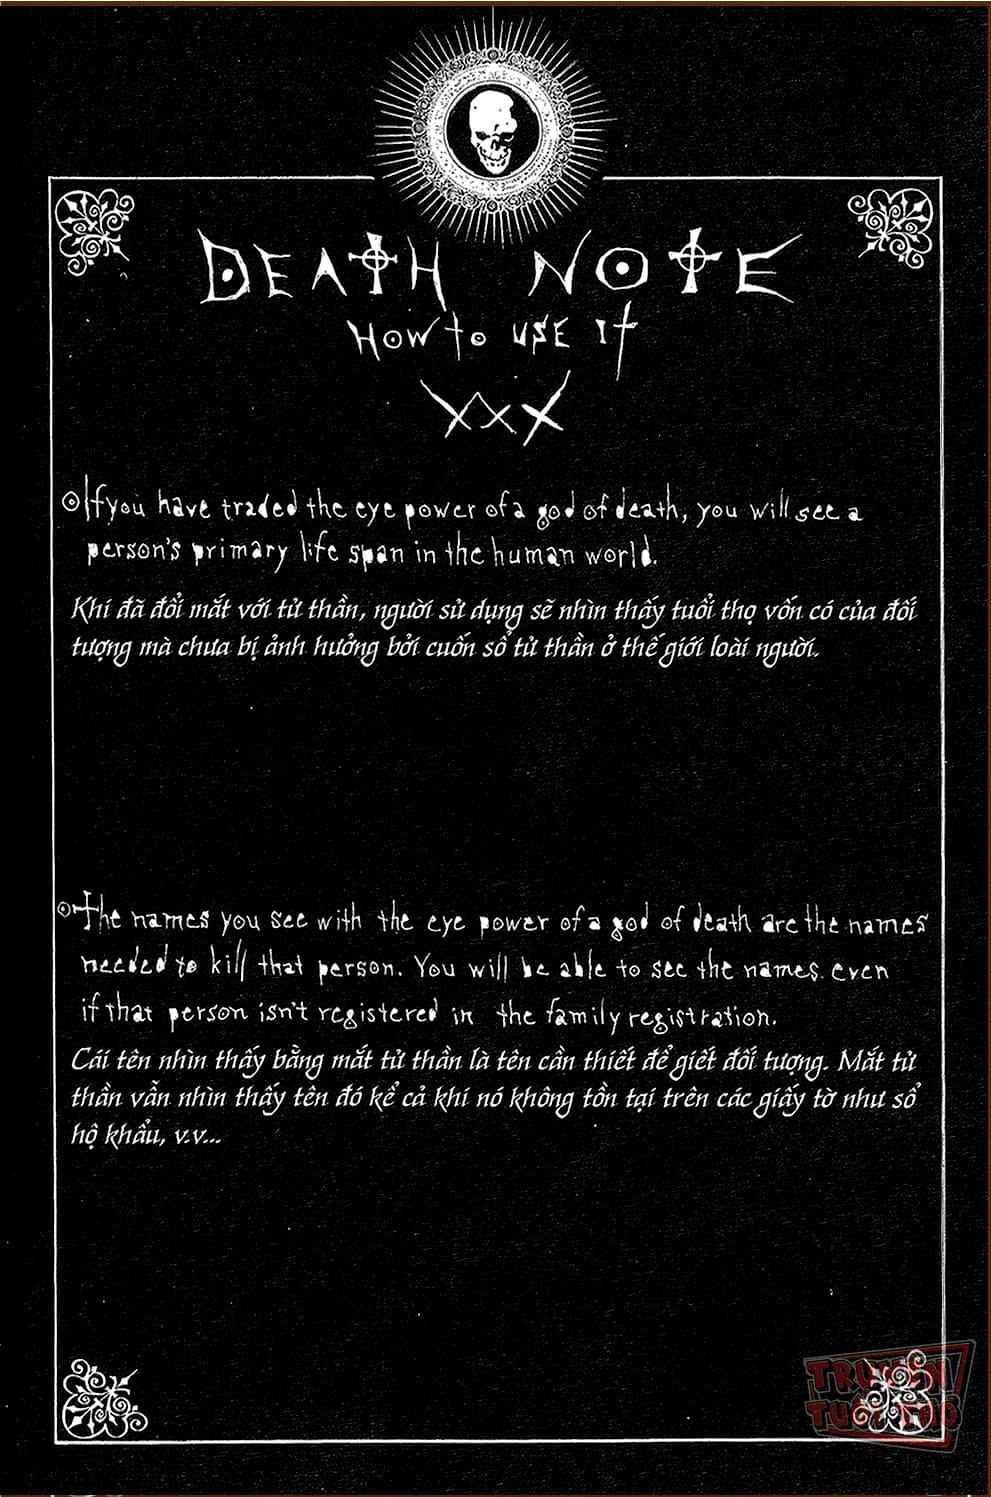 DEATH NOTE
HOW to USE It
XXX
If you have traded the eye power of a god of death, you will see a
person's primary life span in the human world.
Khi đã đổi mắt với tử thần, người sử dụng sẽ nhìn thấy tuổi thọ vốn có của đối
tượng mà chưa bị ảnh hưởng bởi cuốn sổ tử thần ở thế giới loài người.
The names you see with the eye power of a god of death are the names
needed to kill that person. You will be able to see the names even
if that person isn't registered in the family registration.
Cái tên nhìn thấy bằng mắt tử thần là tên cần thiết để giết đối tượng. Mắt tử
thần vẫn nhìn thấy tên đó kể cả khi nó không tồn tại trên các giấy tờ như sổ
hộ khẩu, v.v...
TRUYỆN
TUỔI THƠ